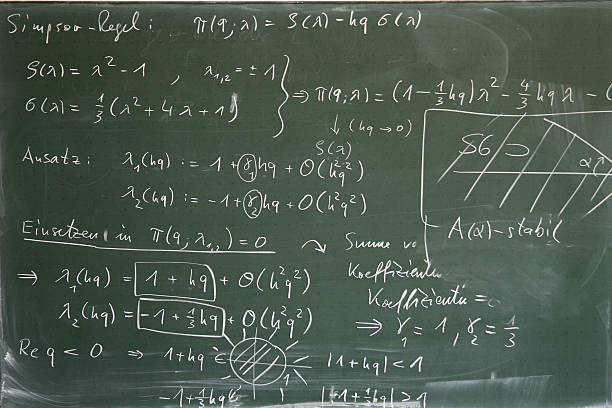 Simpson-Regel: π(q;λ) = ρ(λ) - hq σ(λ)
ρ(λ) = λ² - 1 , λ₁,₂ = ± 1
σ(λ) = 1/3 (λ² + 4λ + 1)
⇒ π(q;λ) = (1 - 1/3 hq) λ² - 4/3 hq λ - (
↓ (hq → 0)
ρ(λ)
SG ⊃
α
A(α)-stabil
Ansatz: λ₁(hq) := 1 + γ₁ hq + O(h²q²)
λ₂(hq) := -1 + γ₂ hq + O(h²q²)
Einsetzen in π(q, λ₁,₂) = 0
Summe
Koeffizienten
Koeffizienten =
⇒ λ₁(hq) = 1 + hq + O(h²q²)
λ₂(hq) = -1 + 1/3 hq + O(h²q²)
⇒ γ₁ = 1, γ₂ = 1/3
Re q < 0 ⇒ 1 + hq ∈
1
|1 + hq| < 1
-1 + 1/3 hq ∉
|-1 + 1/3 hq| > 1